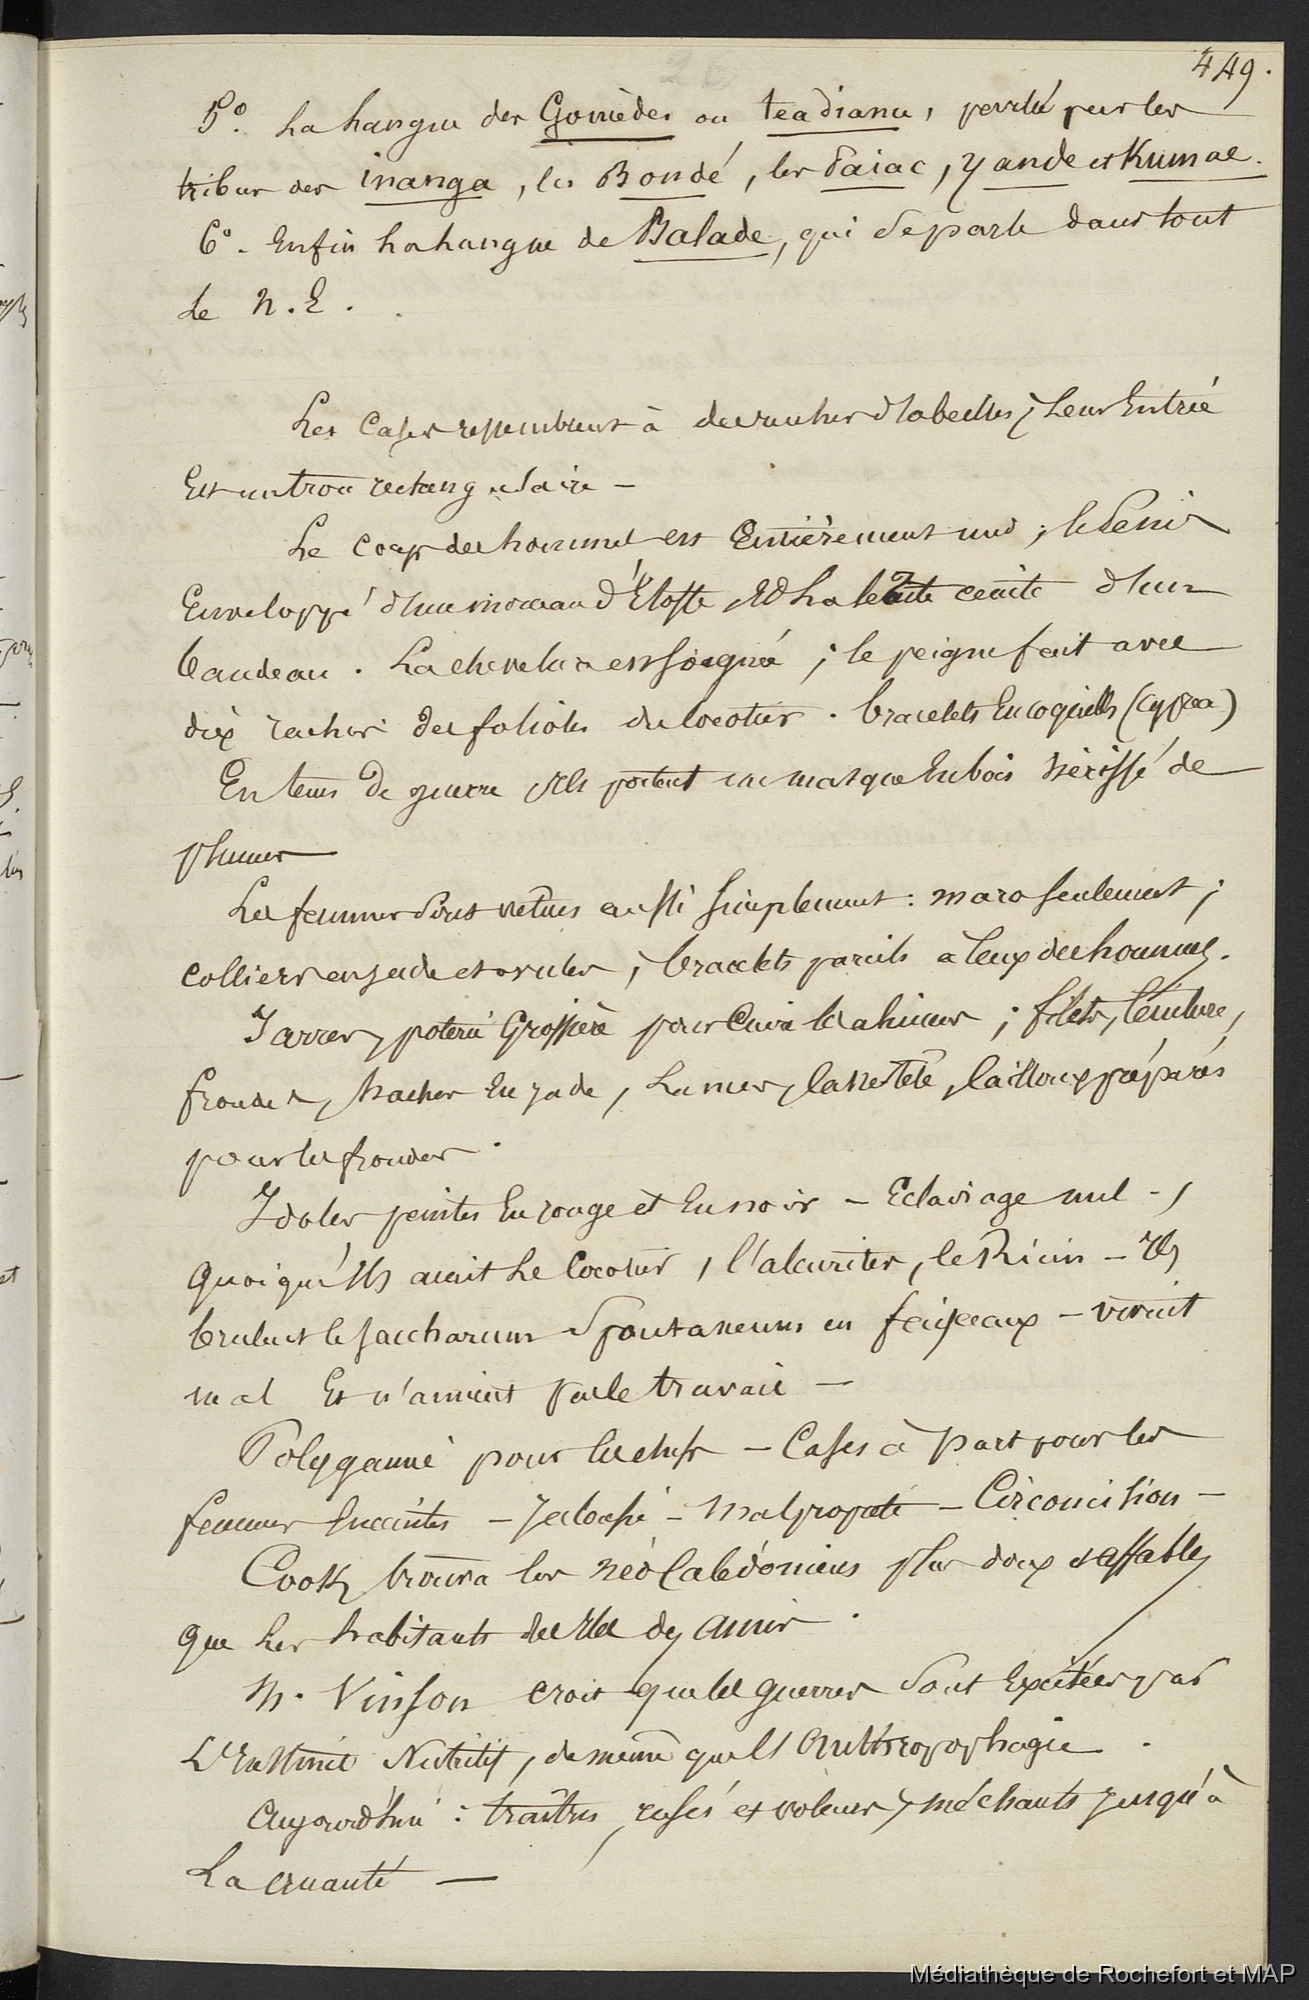 449.
5º. La langue des Gomèdes ou teadianu, parlée par les
tribus des inanga, les Bondé, les Paiac, yande et Kumac.
6º. Enfin La langue de Balade, qui se parle dans tout
le N. E.
Les Cases ressemblent à des ruches d'abeilles, Leur Entrée
Est un trou rectangulaire —
Le corps des hommes est Entièrement nud ; le Penis
Enveloppé d'un morceau d'Étoffe et La tête ceinte d'un
bandeau. La chevelure est soignée ; le peigne fait avec
dix rachis des folioles du cocotier. bracelets En coquilles (Cyprea)
En tems de guerre ils portent un masque En bois hérissé de
plumes —
Les femmes sont vetues aussi simplement : maro seulement ;
colliers en jade et ovules ; bracelets pareils a Ceux des hommes.
Jarres, poterie Grossière pour Cuire les alimens ; filets, Ceinture,
frondes, haches En jade, Lances, Casse tête, Cailloux préparés
pour les frondes.
Idoles peintes En rouge et En noir — Eclairage nul -,
quoiqu'Ils aient Le Cocotier, l'aleurites, le Ricin — Ils
brulent le Saccharum Spontaneum en faisceaux — vivent
mal Et n'aiment pas le travail —
Polygamie pour les chefs — Cases à part pour les
femmes Enceintes — Jalousie — Malpropreté — Circoncision —
Cook trouva les néo Calédoniens plus doux et affables
que Les habitants des Iles des Amis.
M. Vinson croit que les guerres sont Excitées par
L'Instinct Nutritif, de même que l'Anthropophagie.
Aujourd'hui : traîtres, rusés et voleurs, méchants jusqu'à
La cruauté —
Médiathèque de Rochefort et MAP